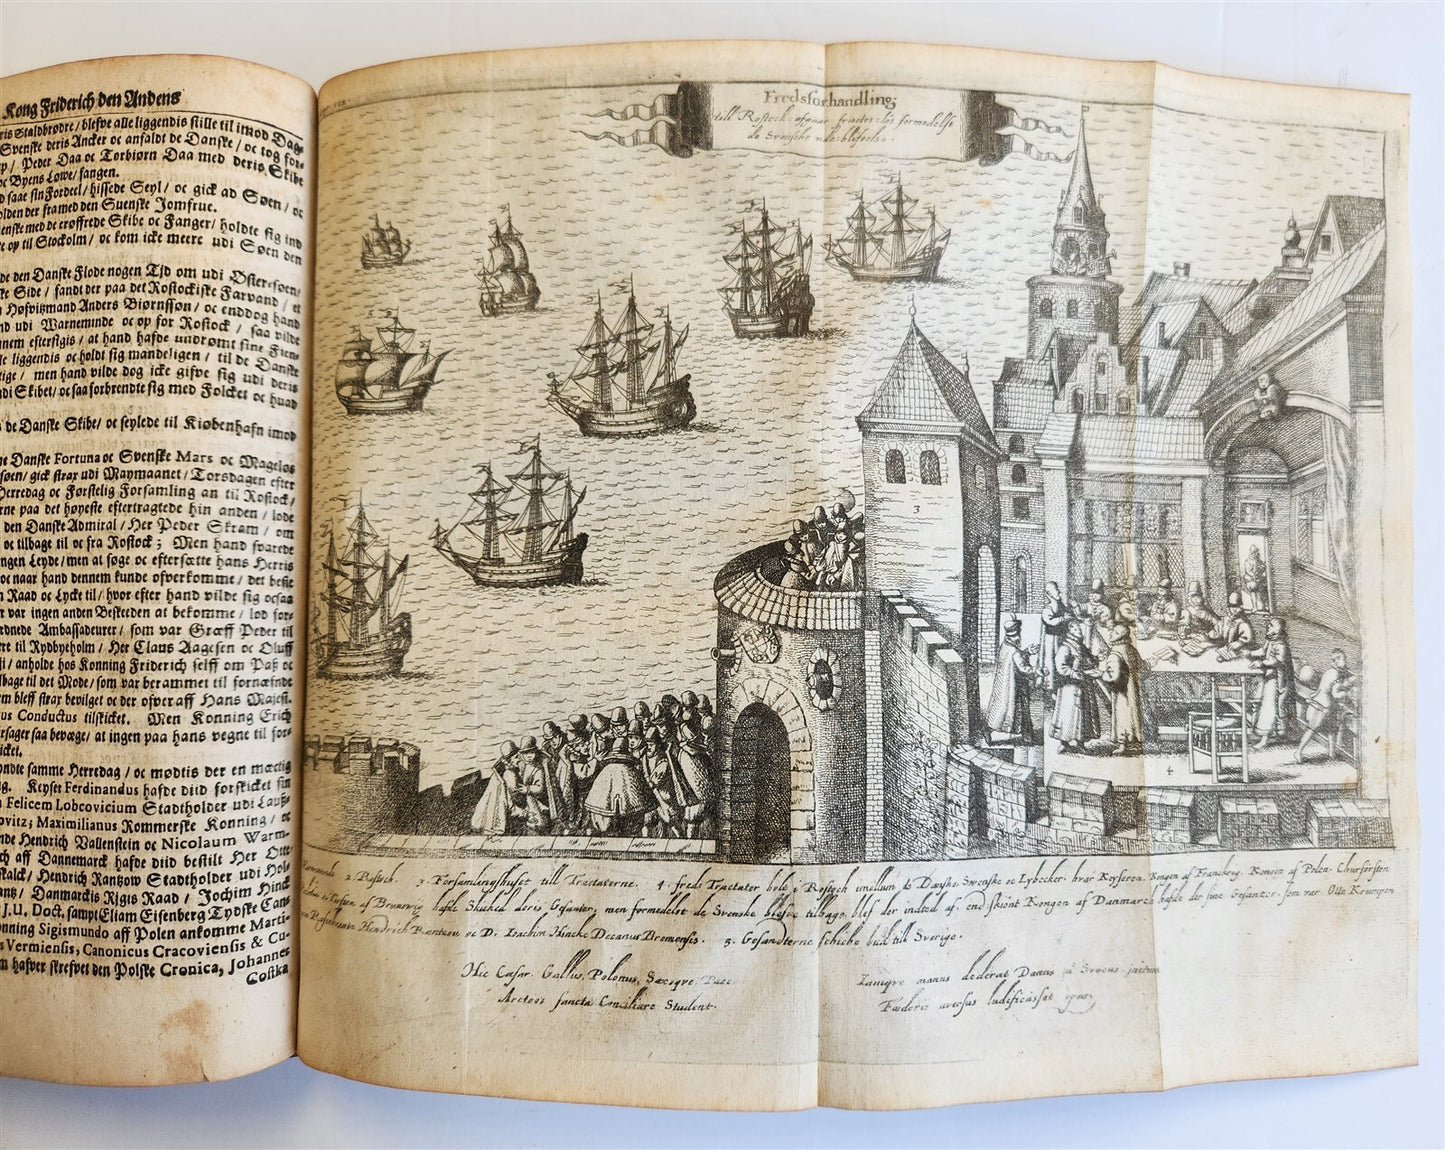 Kong Friderich den Andens
ris Staldbrødre / blefve alle liggendis stille til imod Dag-
Svenske deris Ancker oc anfaldt de Danske / oc tog for-
p / Peder Daa oc Torbiørn Daa med deris Skibe
oc Byens Løwe / fangen.
d saae sin Fordeel / hissede Seyl / oc gick ad Søen / oc
olden der fra med den Suenske Jomfrue.
enske med de eroffrede Skibe oc Fanger / holdte sig ind
e op til Stockolm / oc kom icke meere udi Søen den
de den Danske Flode nogen Tjd om udi Øster-søen /
ke Side / fandt der paa det Rostockiske Farvand / et
Høfvitzmand Anders Biørnssøn / oc enddog hand
nd udi Warneminde oc op for Rostock / saa vilde
nnem eftersigis / at hand hafde undrømt sine Fien-
le liggendis oc holdt sig mandeligen / til de Danske
tige / men hand vilde dog icke gifve sig udi deris
udi Skibet / oc saa forbrendte sig med Folcket oc huad
s de Danske Skibe / oc seylede til Kiøbenhafn imod
ne Danske Fortuna oc Svenske Mars oc Mageløs
søen / gick strax udi Maymaanet / Torsdagen efter
Herredag oc Førstelig Forsamling an til Rostock /
rne paa det høyeste eftertragtede hin anden / lode
den Danske Admiral / Her Peder Skram / om
oc tilbage til oc fra Rostock ; Men hand svarede
ngen Leyde / men at søge oc eftersætte hans Herris
oc naar hand dennem kunde ofverkomme / det beste
n Raad oc Lycke til / hvor efter hand vilde sig ocsaa
r var ingen anden Beskeeden at bekomme / lod for-
rdnede Ambassadeurer / som var Græff Peder til
ere til Rydbyeholm / Her Claus Aagesen oc Oluff
ji / anholde hos Konning Friderich self om Paß oc
lbage til det Møde / som var berammet til fornæfnde
m bleff strax bevilget oc der ofver aff Hans Majest.
us Conductus tilskicket. Men Konning Erich
rsager saa bevæge / at ingen paa hans vegne til for-
icket.
ndte samme Herredag / oc mødtis der en mæctig
g. Keyser Ferdinandus hafde diid forskicket sin
Felicem Lobcovicium Stadtholder udi Lauß-
ovitz ; Maximilianus Rommerske Konning / oc
nde Hendrich Vallenstein oc Nicolaum Warm-
ch aff Dannemarck hafde diid bestilt Her Otte
kalck / Hendrich Rantzow Stadtholder udi Hol-
ant / Danmarckis Rigis Raad / Jochim Hinck
J.U. Doct. sampt Eliam Eisenberg Tydske Can-
onning Sigismundo aff Polen ankomme Marti-
s Vermiensis, Canonicus Cracoviensis & Cu-
m hafver skrefvet den Polske Cronica, Johannes
Costka
Fredsforhandling
till Rostock
de Svenske ude blefvche
3
4
2. Rostoch. 3. Forsamlingshuset till Tractaterne. 4. freds Tractater hole i Rostoch imellum de Danske, Svenske oc Lybecker, hvar Keyseren Kongen af Franckrig. Kongen af Polen. Churførsten
af Brunsvig hafde Skicked deris Gesanter, men formedelst de Svenske blefve tilbage, blef der indted af, end skiönt Kongen af Danmarch hafde der sine Gesanter, som var Otte Krumpen
Hendrich Rantzou oc D. Joachim Hincke Decanus Bremensis. 5. Gesandterne schiche bud till Sverige.
Hic Cæsar, Gallus, Polonus, Saxoque Pace
Arctoos sancta Conciliare Student.
manus dederat Danus
Fœderis aversus ludificasset opus.